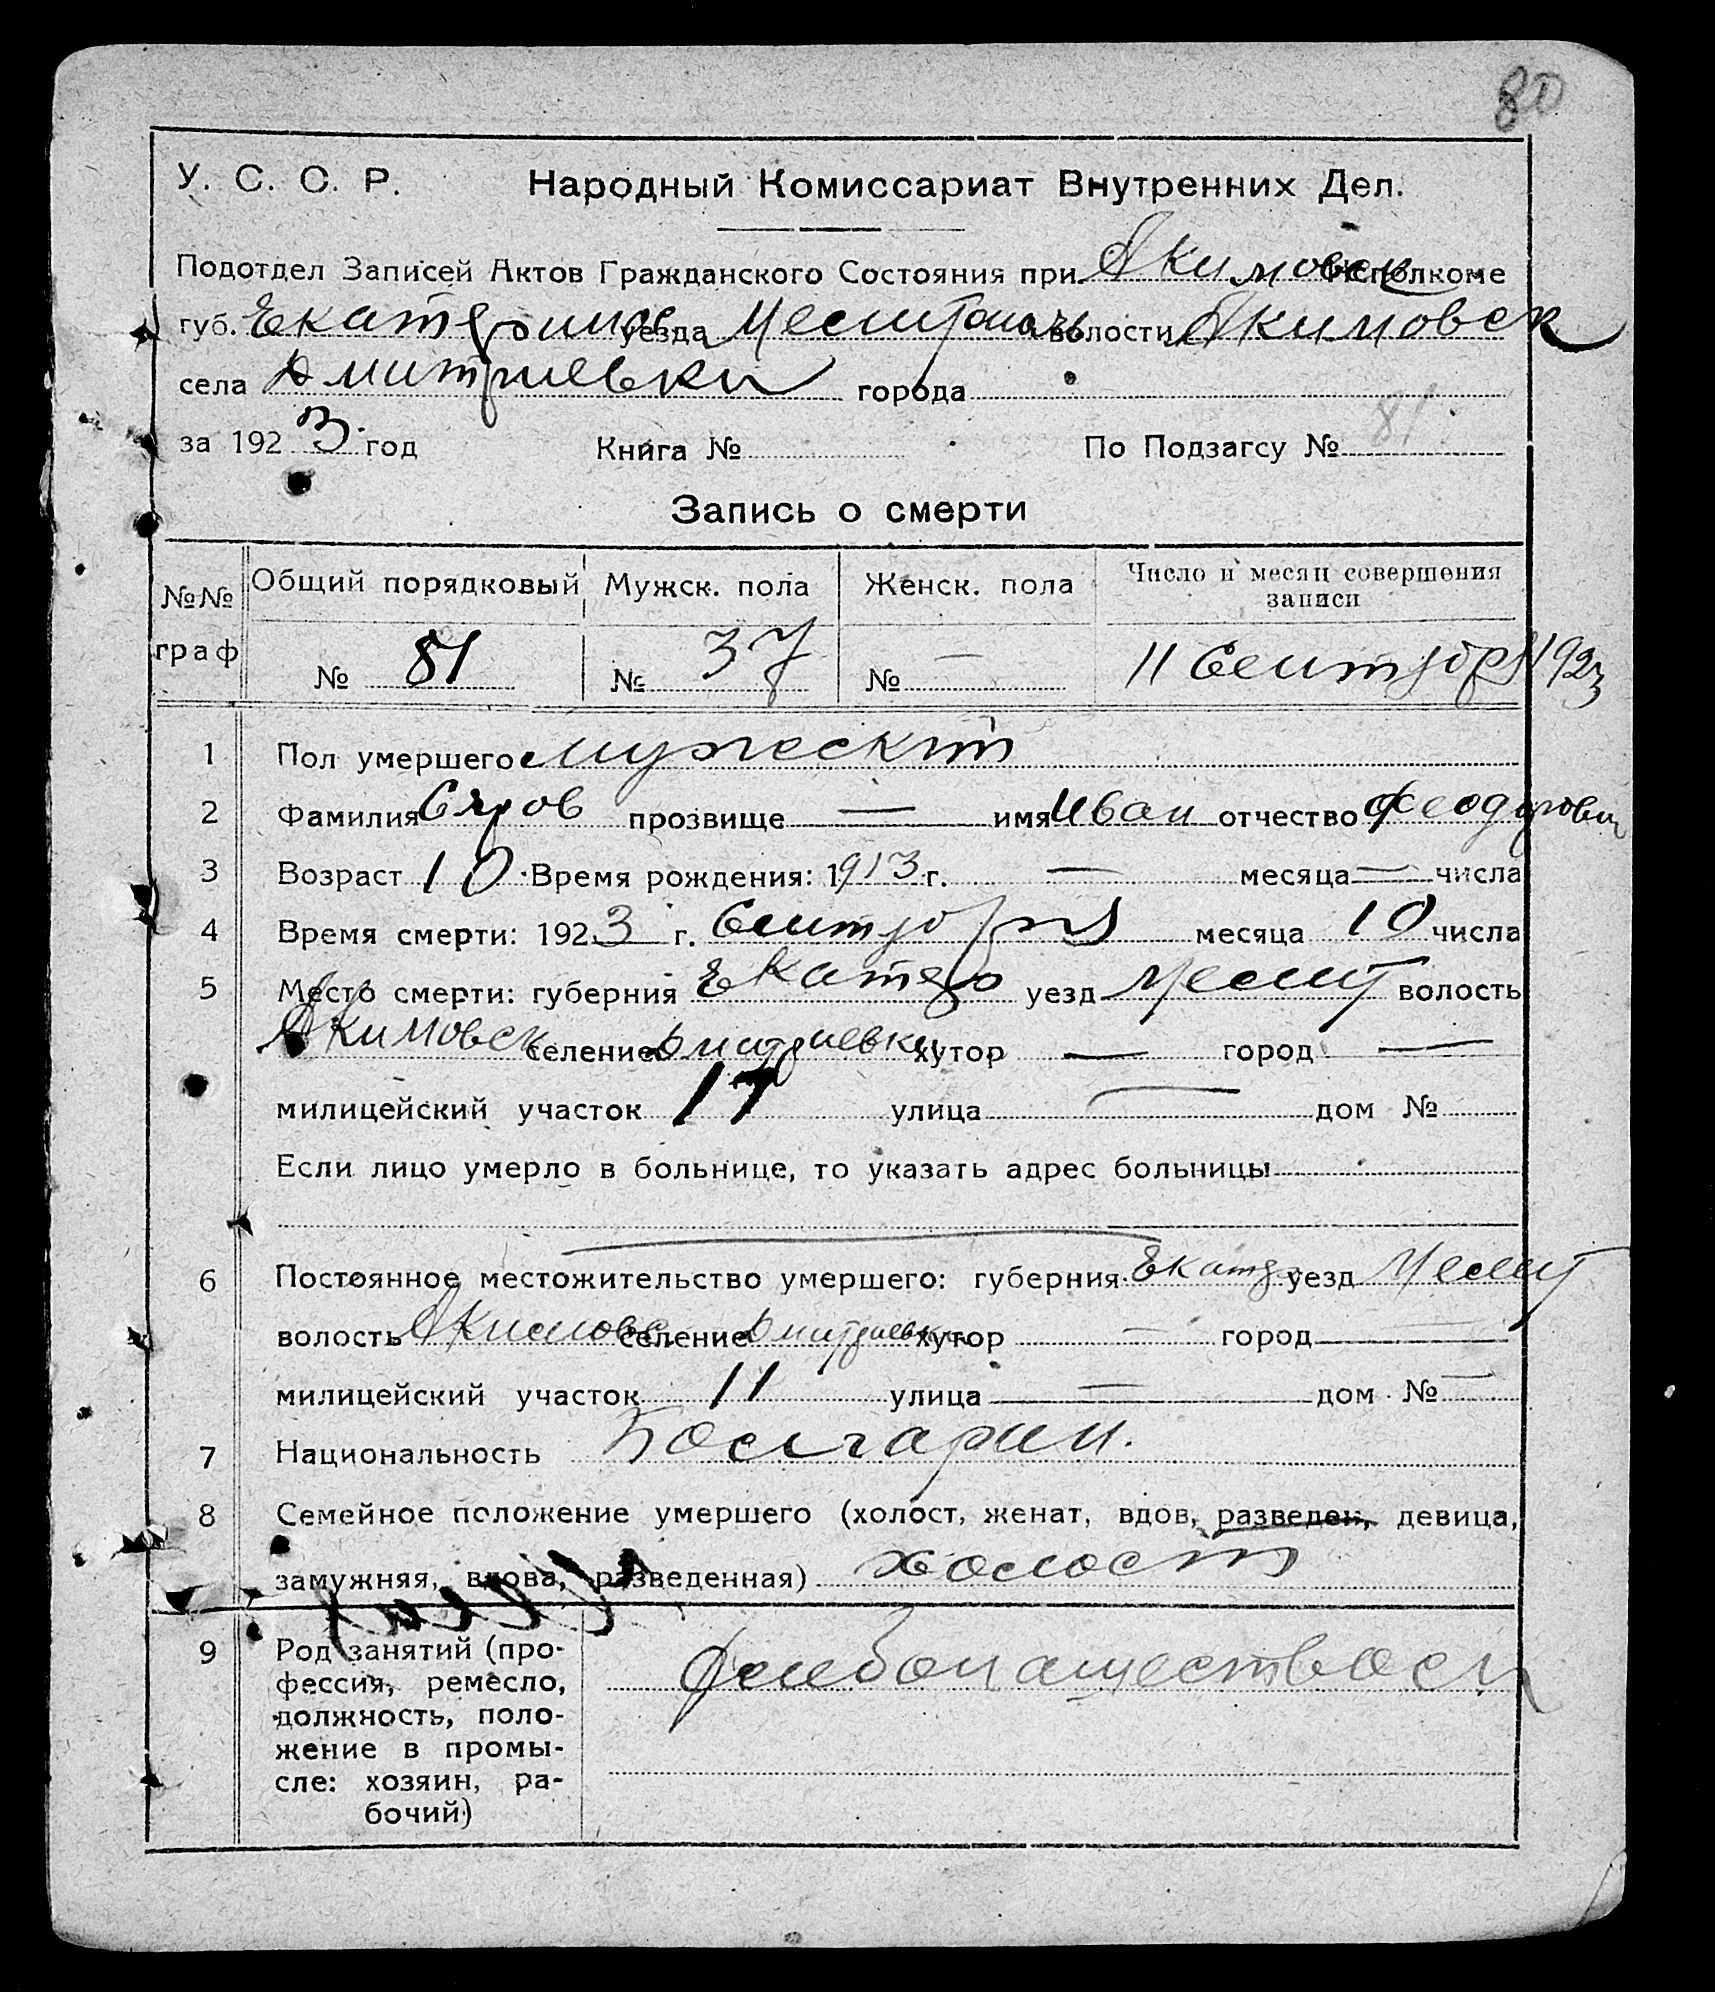 80
У. С. С. Р. Народный Комиссариат Внутренних Дел.
Подотдел Записей Актов Гражданского Состояния при Якимовск Исполкоме
губ. Екатерин уезда волости Якимовск
села Дмитриевки города
за 1923 год Книга № По Подзагсу № 81
Запись о смерти
№№ граф Общий порядковый Мужск. пола Женск. пола Число и месяц совершения записи
№ 81 № 37 № — 11 Сентября 1923
1 Пол умершего мужской
2 Фамилия прозвище — имя Иван отчество Феодорович
3 Возраст 10 Время рождения: 1913 г. — месяца — числа
4 Время смерти: 1923 г. Сентября месяца 10 числа
5 Место смерти: губерния Екатер уезд Мелит волость
Якимовск селение Дмитриевки хутор — город —
милицейский участок улица — дом №
Если лицо умерло в больнице, то указать адрес больницы
6 Постоянное местожительство умершего: губерния Екатер уезд Мелит
волость Якимовс селение Дмитриевки хутор — город —
милицейский участок 11 улица — дом № —
7 Национальность Болгарин.
8 Семейное положение умершего (холост, женат, вдов, разведен, девица,
замужняя, вдова, разведенная) холост
9 Род занятий (про-
фессия, ремесло,
должность, поло-
жение в промы-
сле: хозяин, ра-
бочий)